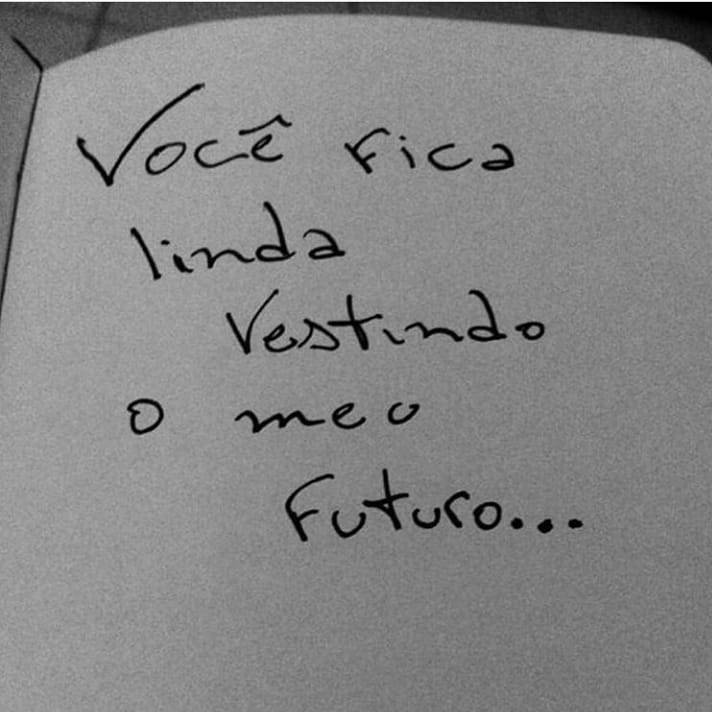 Você fica
linda
Vestindo
o meu
Futuro...